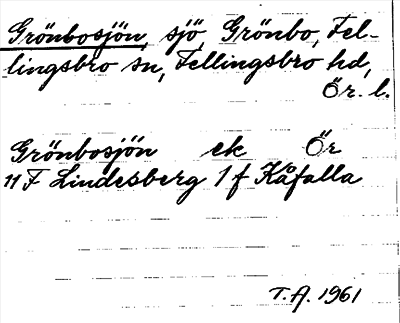 Grönbosjön, sjö, Grönbo, Fel-
lingsbro sn, Fellingsbro hd,
Ör. l.
Grönbosjön ek Ör
11 F Lindesberg 1 f Kåfalla
T.A. 1961